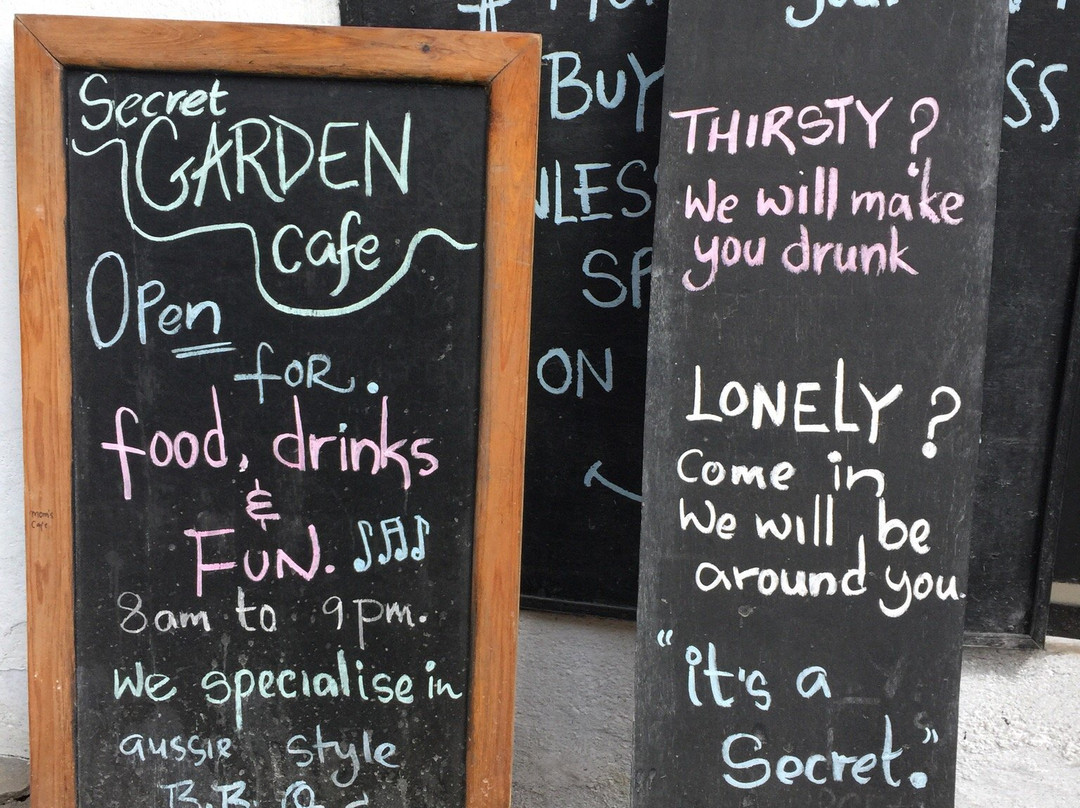 Secret
GARDEN
cafe
Open
for.
food, drinks
&
FUN.
8am to 9pm.
We specialise in
aussie style
B.B.Q
BUY
SP
ON
THIRSTY?
We will make
you drunk
LONELY?
Come in
We will be
around you.
"it's a
Secret."
mom's
Cafe